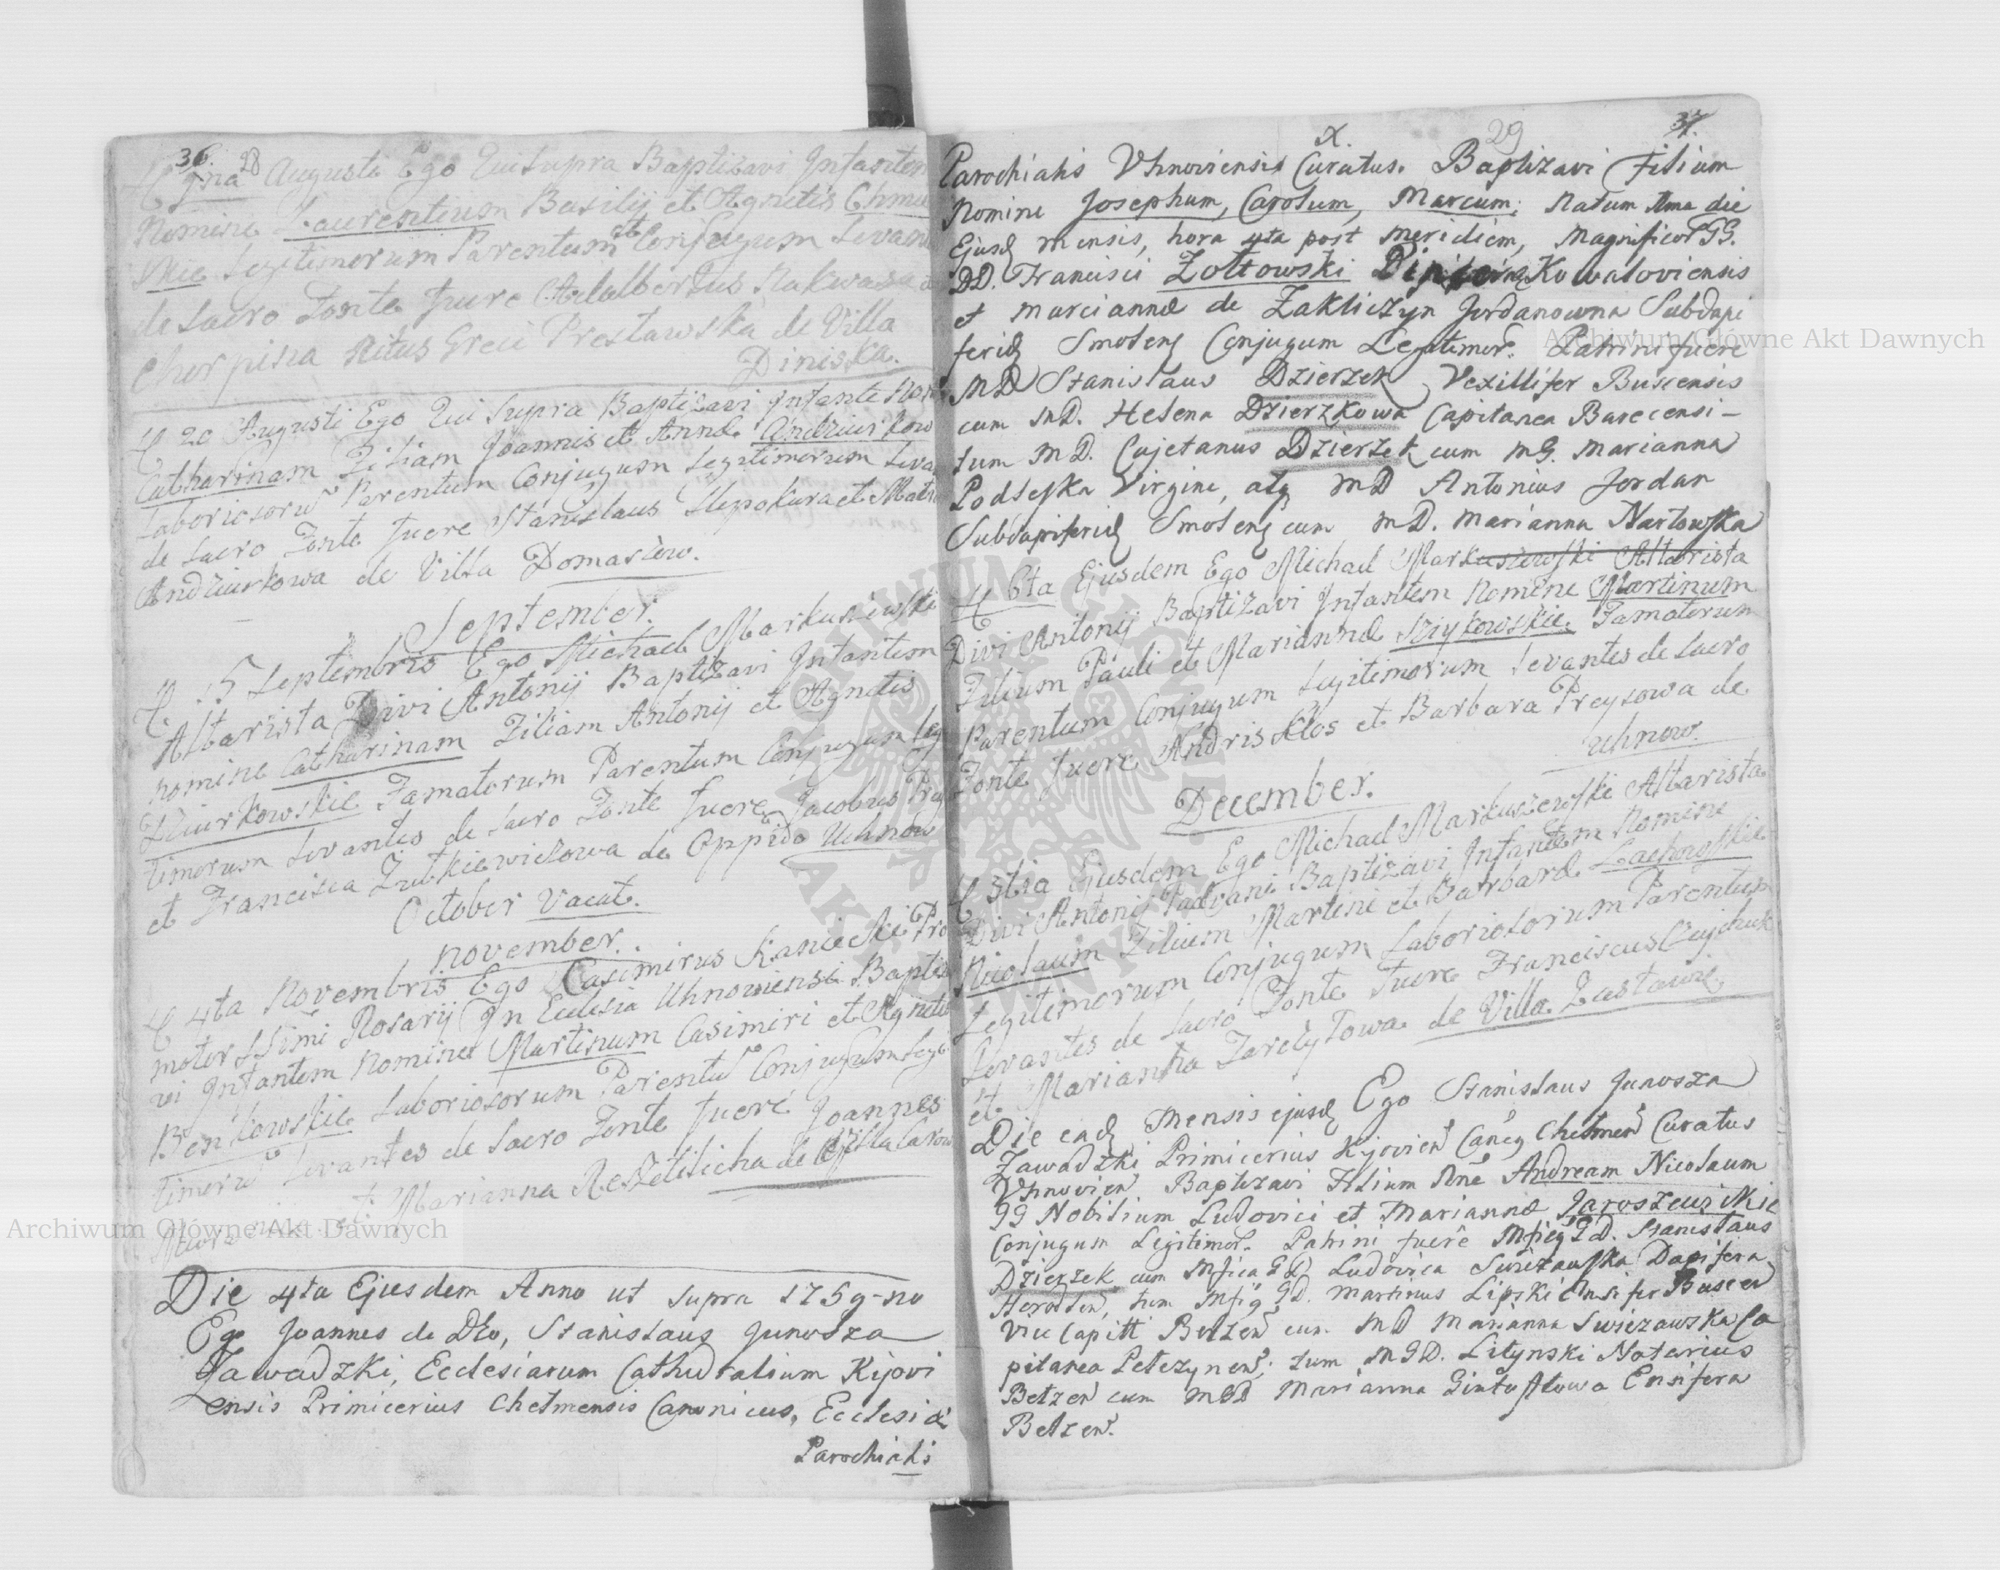 36. 28
Augusti Ego Qui Supra Baptizavi Infantem
Nomine Laurentium Basilij et Agnetis Chmu
Legitimorum Parentum et Conjugum Levan
de Sacro Fonte fuere Adalbertus Rakwasa
Ritus Greci Presławska de Villa
Diniska.
20 Augusti Ego Qui Supra Baptizavi Infante Nom
Catharinam Filiam Joannis et Annæ Andziurkow
Laboriosorũ Parentum Conjugum Legitimorum Leva
de Sacro Fonte fuere Stanislaus Slepokura et
Andziurkowa de Villa Domasiow.
September.
15 Septembris Ego Michael Markusiewski
Altarista Divi Antonij Baptizavi Infantem
nomine Catharinam Filiam Antonij et Agnetis
Dziurkowskie Famatorum Parentum Conjugum Leg
timorum Levantes de Sacro Fonte fuere Jacobus
et Francisca Zutkiewiczowa de Oppido Uhnow
October Vacat.
November.
4ta Novembris Ego Casimirus Kaniecki Pro
motor SSimi Rosarij In Eclesia Uhnowiensi Baptiz
vi Infantem Nomine Martinum Casimiri et Agnetis
Benkowskie Laboriosorum Parentũ Conjugum Legi
timorũ Levantes de Sacro Fonte fuere Joannes
et Marianna Reszetilicha de Villa
Die 4ta Ejusdem Anno ut supra 1759-no
Ego Joannes de Deo, Stanislaus Junosza
Zawadzki, Ecclesiarum Cathedralium Kijovi
ensis Primicerius Chelmensis Canonicus, Ecclesiæ
Parochialis
X. 29 37.
Parochialis Uhnoviensis Curatus. Baptizavi Filium
Nomine Josephum, Carolum, Marcum; Natum die
Ejusd mensis, hora 4ta post meridiem, Magnificor GG.
DD. Francisci Zołtowski Kowaloviensis
et Mariannæ de Zakliczyn Jordanowna Subdapi
ferid Smolens Conjugum Legitimor. Patrini fuere
MD Stanislaus Dzierzek Vexillifer Buscensis
cum MD. Helena Dzierzkowa Capitanea Barecensi—
tum MD. Cajetanus Dzierzek cum MG. Marianna
Podleska Virgine, atq MD Antonius Jordan
Subdapiferid Smolens cum MD. Marianna Nartowska
6ta Ejusdem Ego Michael Markusiewski Altarista
Divi Antonij Baptizavi Infantem Nomine Martinum
Filium Pauli et Mariannæ Szijkowskie Famatorum
Parentum Conjugum Legitimorum Levantes de Sacro
Fonte fuere Andris Kłos et Barbara Preysowa de
Uhnow.
December.
3tia Ejusdem Ego Michael Markusiewski Altarista
Divi Antonij Padvani Baptizavi Infantem Nomine
Nicolaum Filium Martini et Barbaræ Lachowskie
Legitimorum Conjugum Laboriosorum Parentum
Levantes de Sacro Fonte fuere Franciscus
et Marianna de Villa Zastawie.
Die ead mensis ejusd Ego Stanislaus Junosza
Zawadzki Primicerius Kijovien Canq Chelmen Curatus
Uhnovien Baptizavi Filium Nne Andream Nicolaum
GG Nobilium Ludovici et Mariannæ Jaroszewskie
Conjugum Legitimor. Patrini fuere Mficq GD. Stanislaus
Dzierzek cum Mfica GD. Ludovica Swiezawska Dapifera
tum Mficq GD. Martinus Lipski Ensifer Buscen
Vice Capitt Belzen cum MD Marianna Swiezawska Ca
pitanea tum MGD. Litynski Notarius
Belzen cum MGD Marianna Ensifera
Belzen.
Archiwum Główne Akt Dawnych
Archiwum Główne Akt Dawnych
ARCHIWUM GŁÓWNE AKT DAWNYCH